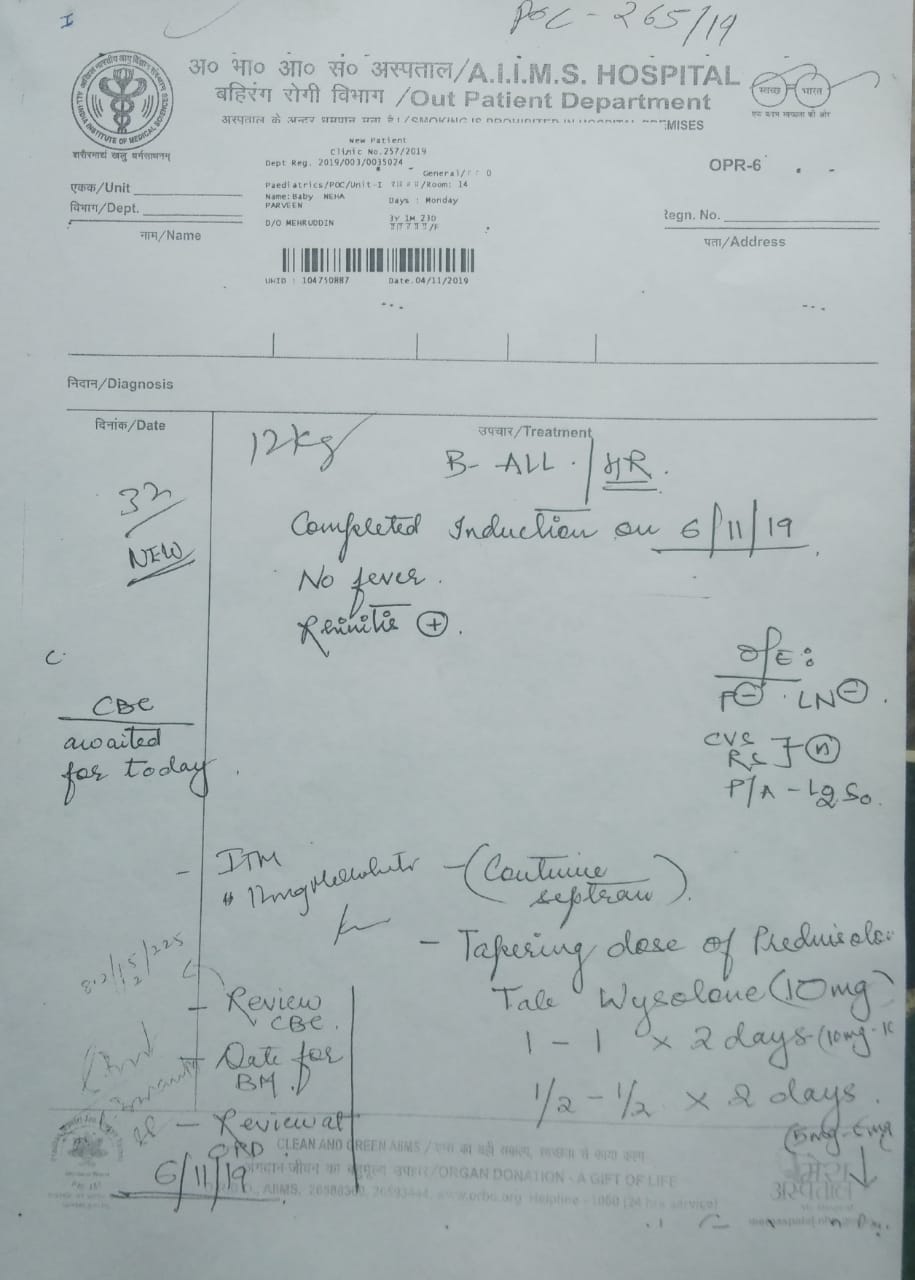 I
POC - 265/19
अ० भा० आ० सं० अस्पताल/A.I.I.M.S. HOSPITAL
बहिरंग रोगी विभाग /Out Patient Department
अस्पताल के अन्दर धूम्रपान मना है।/SMOKING IS PROHIBITED IN HOSPITAL PREMISES
ALL INDIA INSTITUTE OF MEDICAL SCIENCES
शरीरमाद्यं खलु धर्मसाधनम्
स्वच्छ भारत
एक कदम स्वच्छता की ओर
New Patient
Clinic No.257/2019
Dept Reg. 2019/003/0035024
General/
OPR-6
एकक/Unit
Paediatrics/POC/Unit-I /Room: 14
Name: Baby NEHA PARVEEN
Days : Monday
विभाग/Dept.
D/O MEHRUDDIN
3Y 1M 23D
/F
Regn. No.
नाम/Name
पता/Address
UHID : 104750887 Date.04/11/2019
निदान/Diagnosis
दिनांक/Date
उपचार/Treatment
12kg
B- ALL . / HR .
32
NEW
Completed Induction on 6/11/19 .
No fever .
Rhinitis + .
C
O/E :
P - . LN - .
CVS
RS } n
P/A - L2 So.
CBC
awaited
for today .
- ITM
12mg
- (Continue
septran).
- Tapering dose of Prednisolo
Tab Wysolone (10mg)
1 - 1 × 2 days (10mg-10
1/2 - 1/2 × 2 days .
(5mg-5mg
8.2/
- Review
CBC .
- Date for
BM .
- Review at
ORD
6/11/19
CLEAN AND GREEN AIIMS / एम्स का यही संकल्प, स्वच्छता से काया कल्प
अंगदान जीवन का बहुमूल्य उपहार/ORGAN DONATION - A GIFT OF LIFE
AIIMS, 26588360, 26593444, www.orbo.org Helpline - 1060 (24 hrs service)
मेरा
अस्पताल